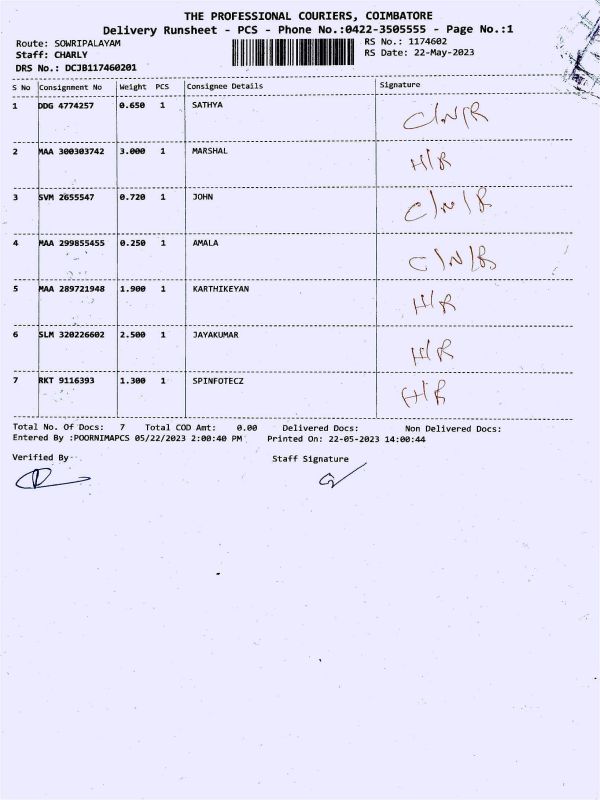 THE PROFESSIONAL COURIERS, COIMBATORE
Delivery Runsheet - PCS - Phone No.:0422-3505555 - Page No.:1
Route: SOWRIPALAYAM RS No.: 1174602
Staff: CHARLY RS Date: 22-May-2023
DRS No.: DCJB117460201
S No Consignment No Weight PCS Consignee Details Signature
1 DDG 4774257 0.650 1 SATHYA C/N/R
2 MAA 300303742 3.000 1 MARSHAL H/R
3 SVM 2655547 0.720 1 JOHN C/N/R
4 MAA 299855455 0.250 1 AMALA C/N/R
5 MAA 289721948 1.900 1 KARTHIKEYAN H/R
6 SLM 320226602 2.500 1 JAYAKUMAR H/R
7 RKT 9116393 1.300 1 SPINFOTECZ H/R
Total No. Of Docs: 7 Total COD Amt: 0.00 Delivered Docs: Non Delivered Docs:
Entered By :POORNIMAPCS 05/22/2023 2:00:40 PM Printed On: 22-05-2023 14:00:44
Verified By Staff Signature